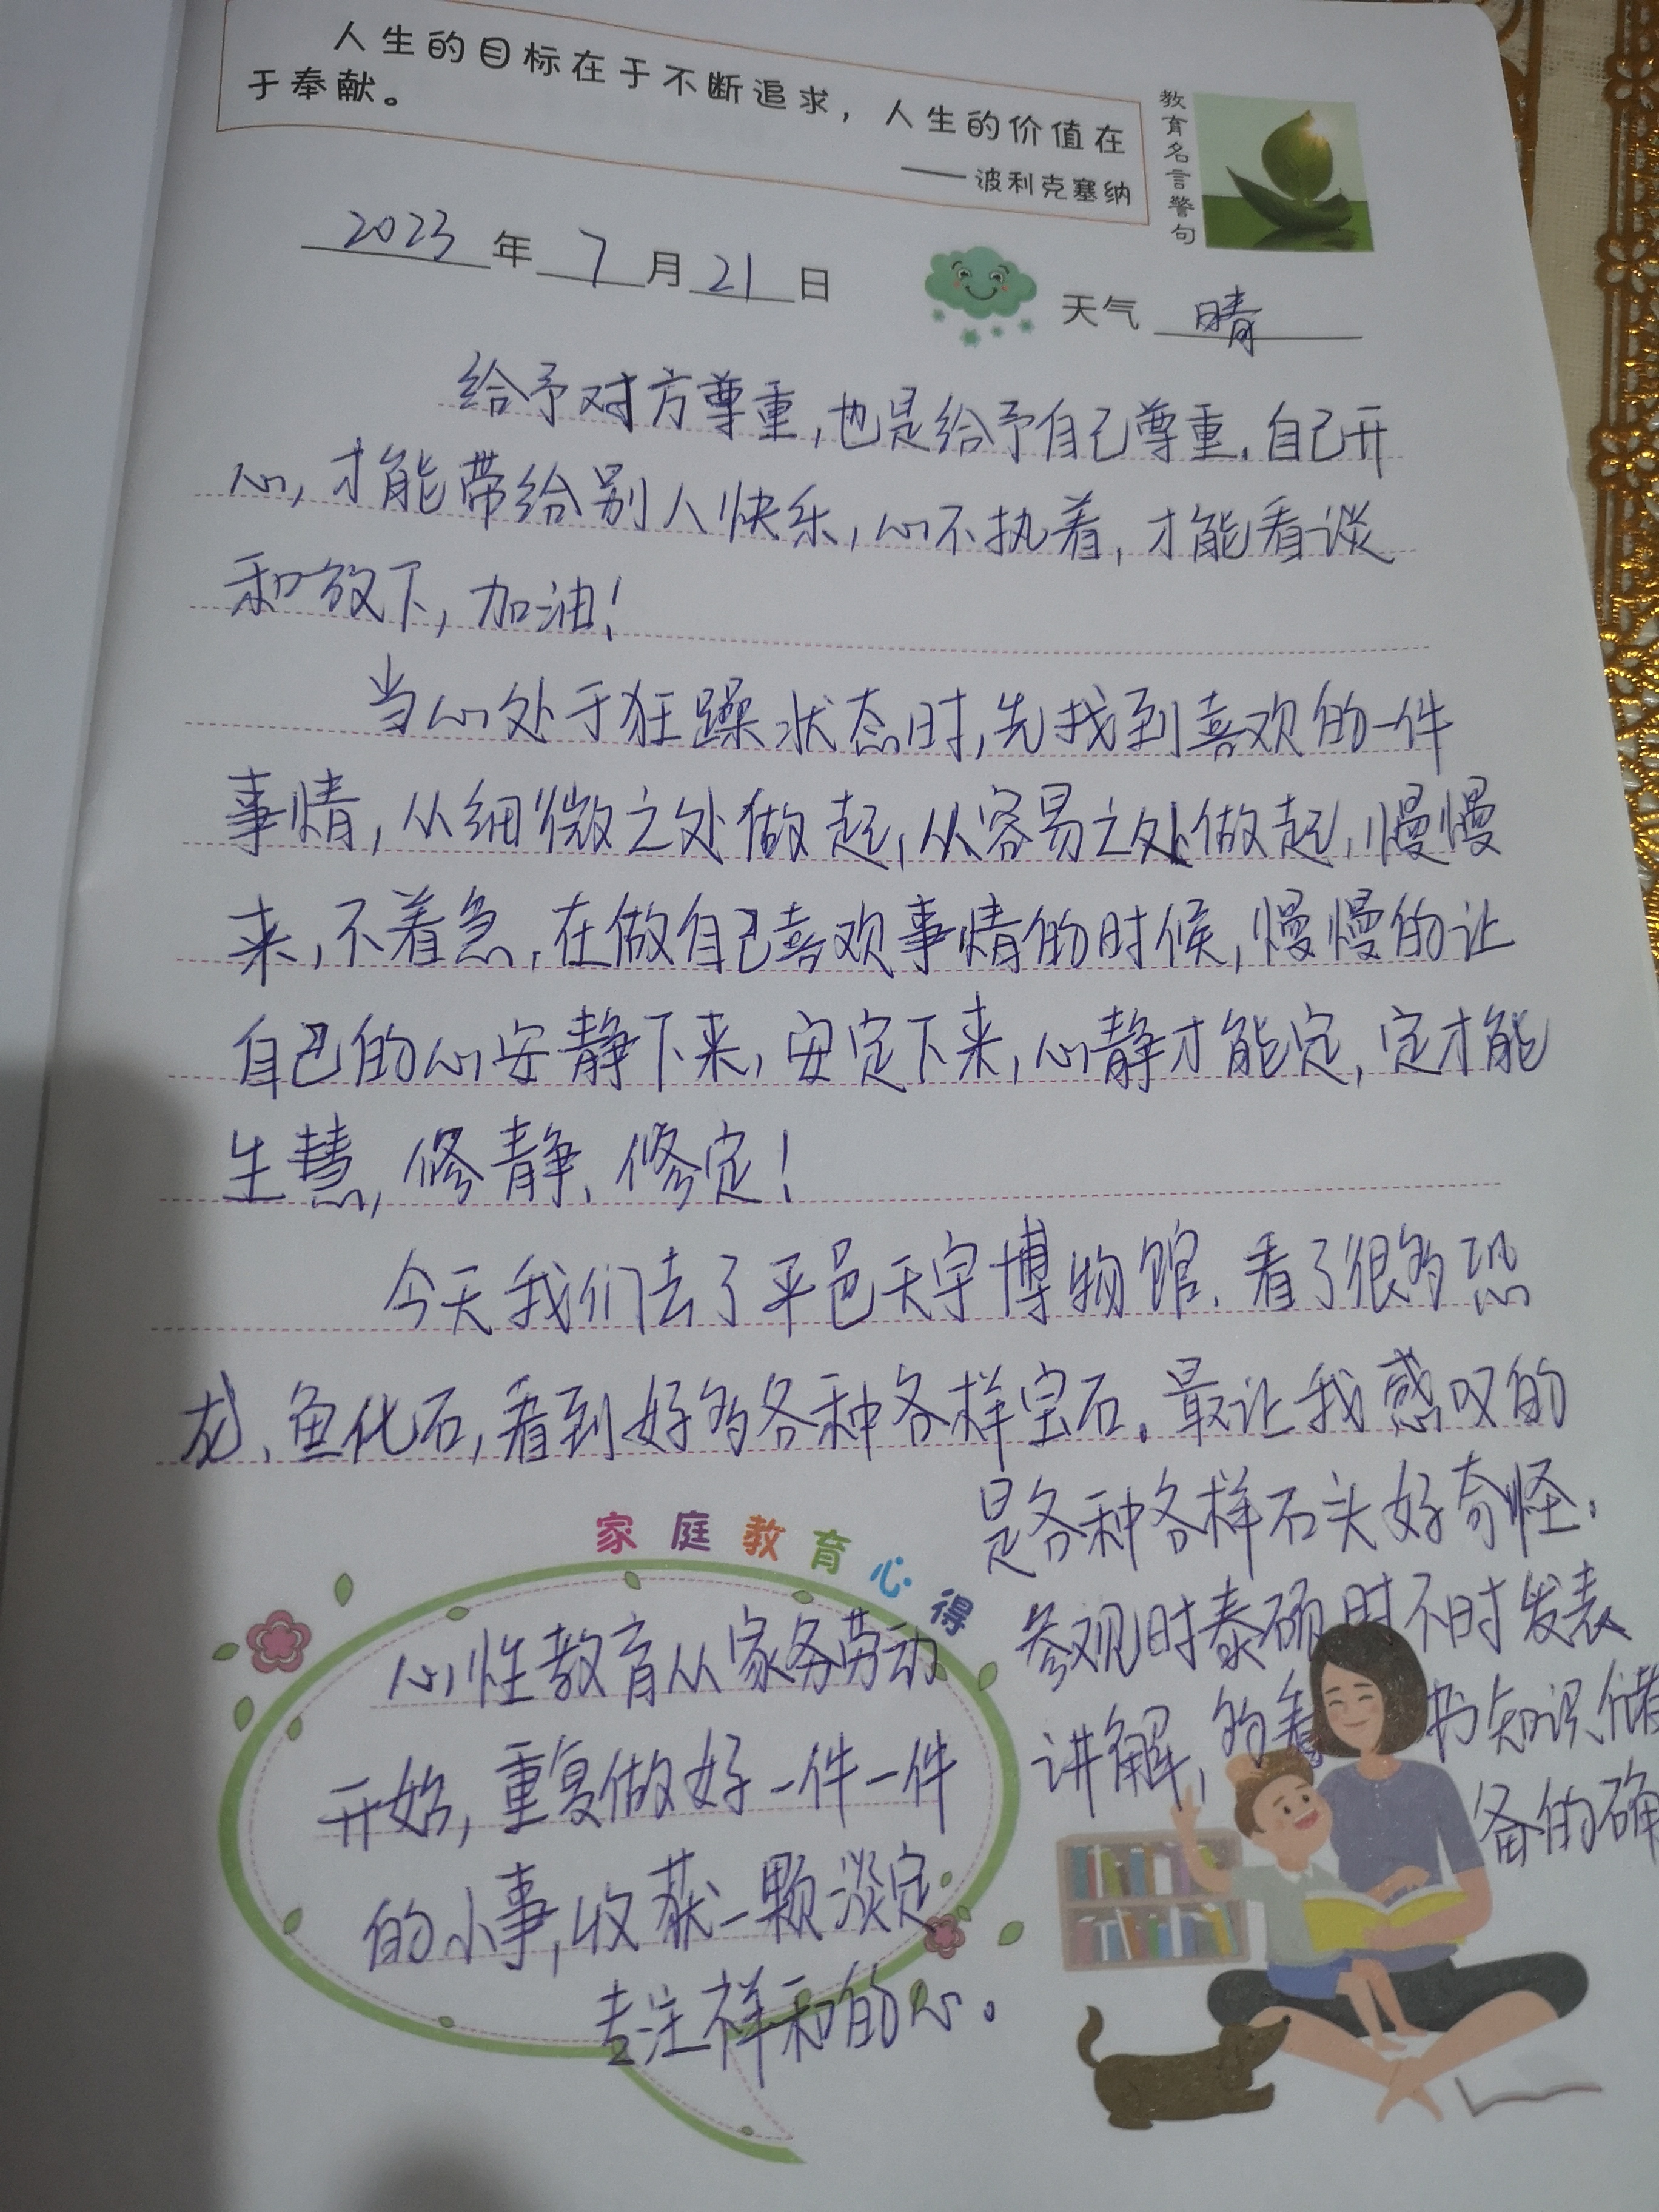 人生的目标在于不断追求，人生的价值在
于奉献。
——波利克塞纳
教育名言警句
2023年7月21日
天气 晴
给予对方尊重,也是给予自己尊重.自己开
心,才能带给别人快乐,心不执着,才能看谈
和放下,加油!
当心处于狂躁状态时,先找到喜欢的一件
事情,从细微之处做起,从容易之处做起,慢慢
来,不着急,在做自己喜欢事情的时候,慢慢的让
自己的心安静下来,安定下来,心静才能定,定才能
生慧,修静、修定!
今天我们去了平邑天宇博物馆.看了很多恐
龙、鱼化石,看到好多各种各样宝石。最让我感叹的
是各种各样石头好奇怪.
参观时泰硕时不时发表
讲解,多看书知识储
备的确
家庭教育心得
心性教育从家务劳动
开始,重复做好一件一件
的小事,收获一颗淡定
专注祥和的心。